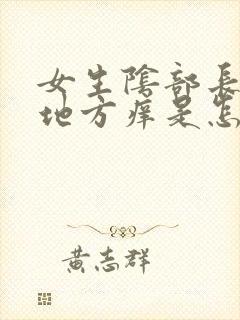 女生陰部長
地方痒是怎
黃志群